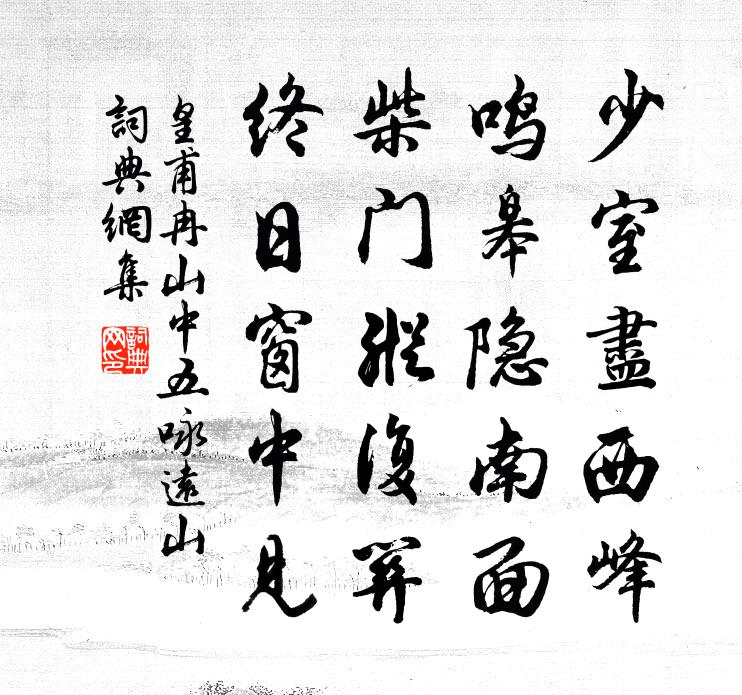 少室盡西峰
鸣皋隐南面
柴门縱復關
终日窗中见
皇甫冉山中五咏遠山
詞典網集
詞典网印